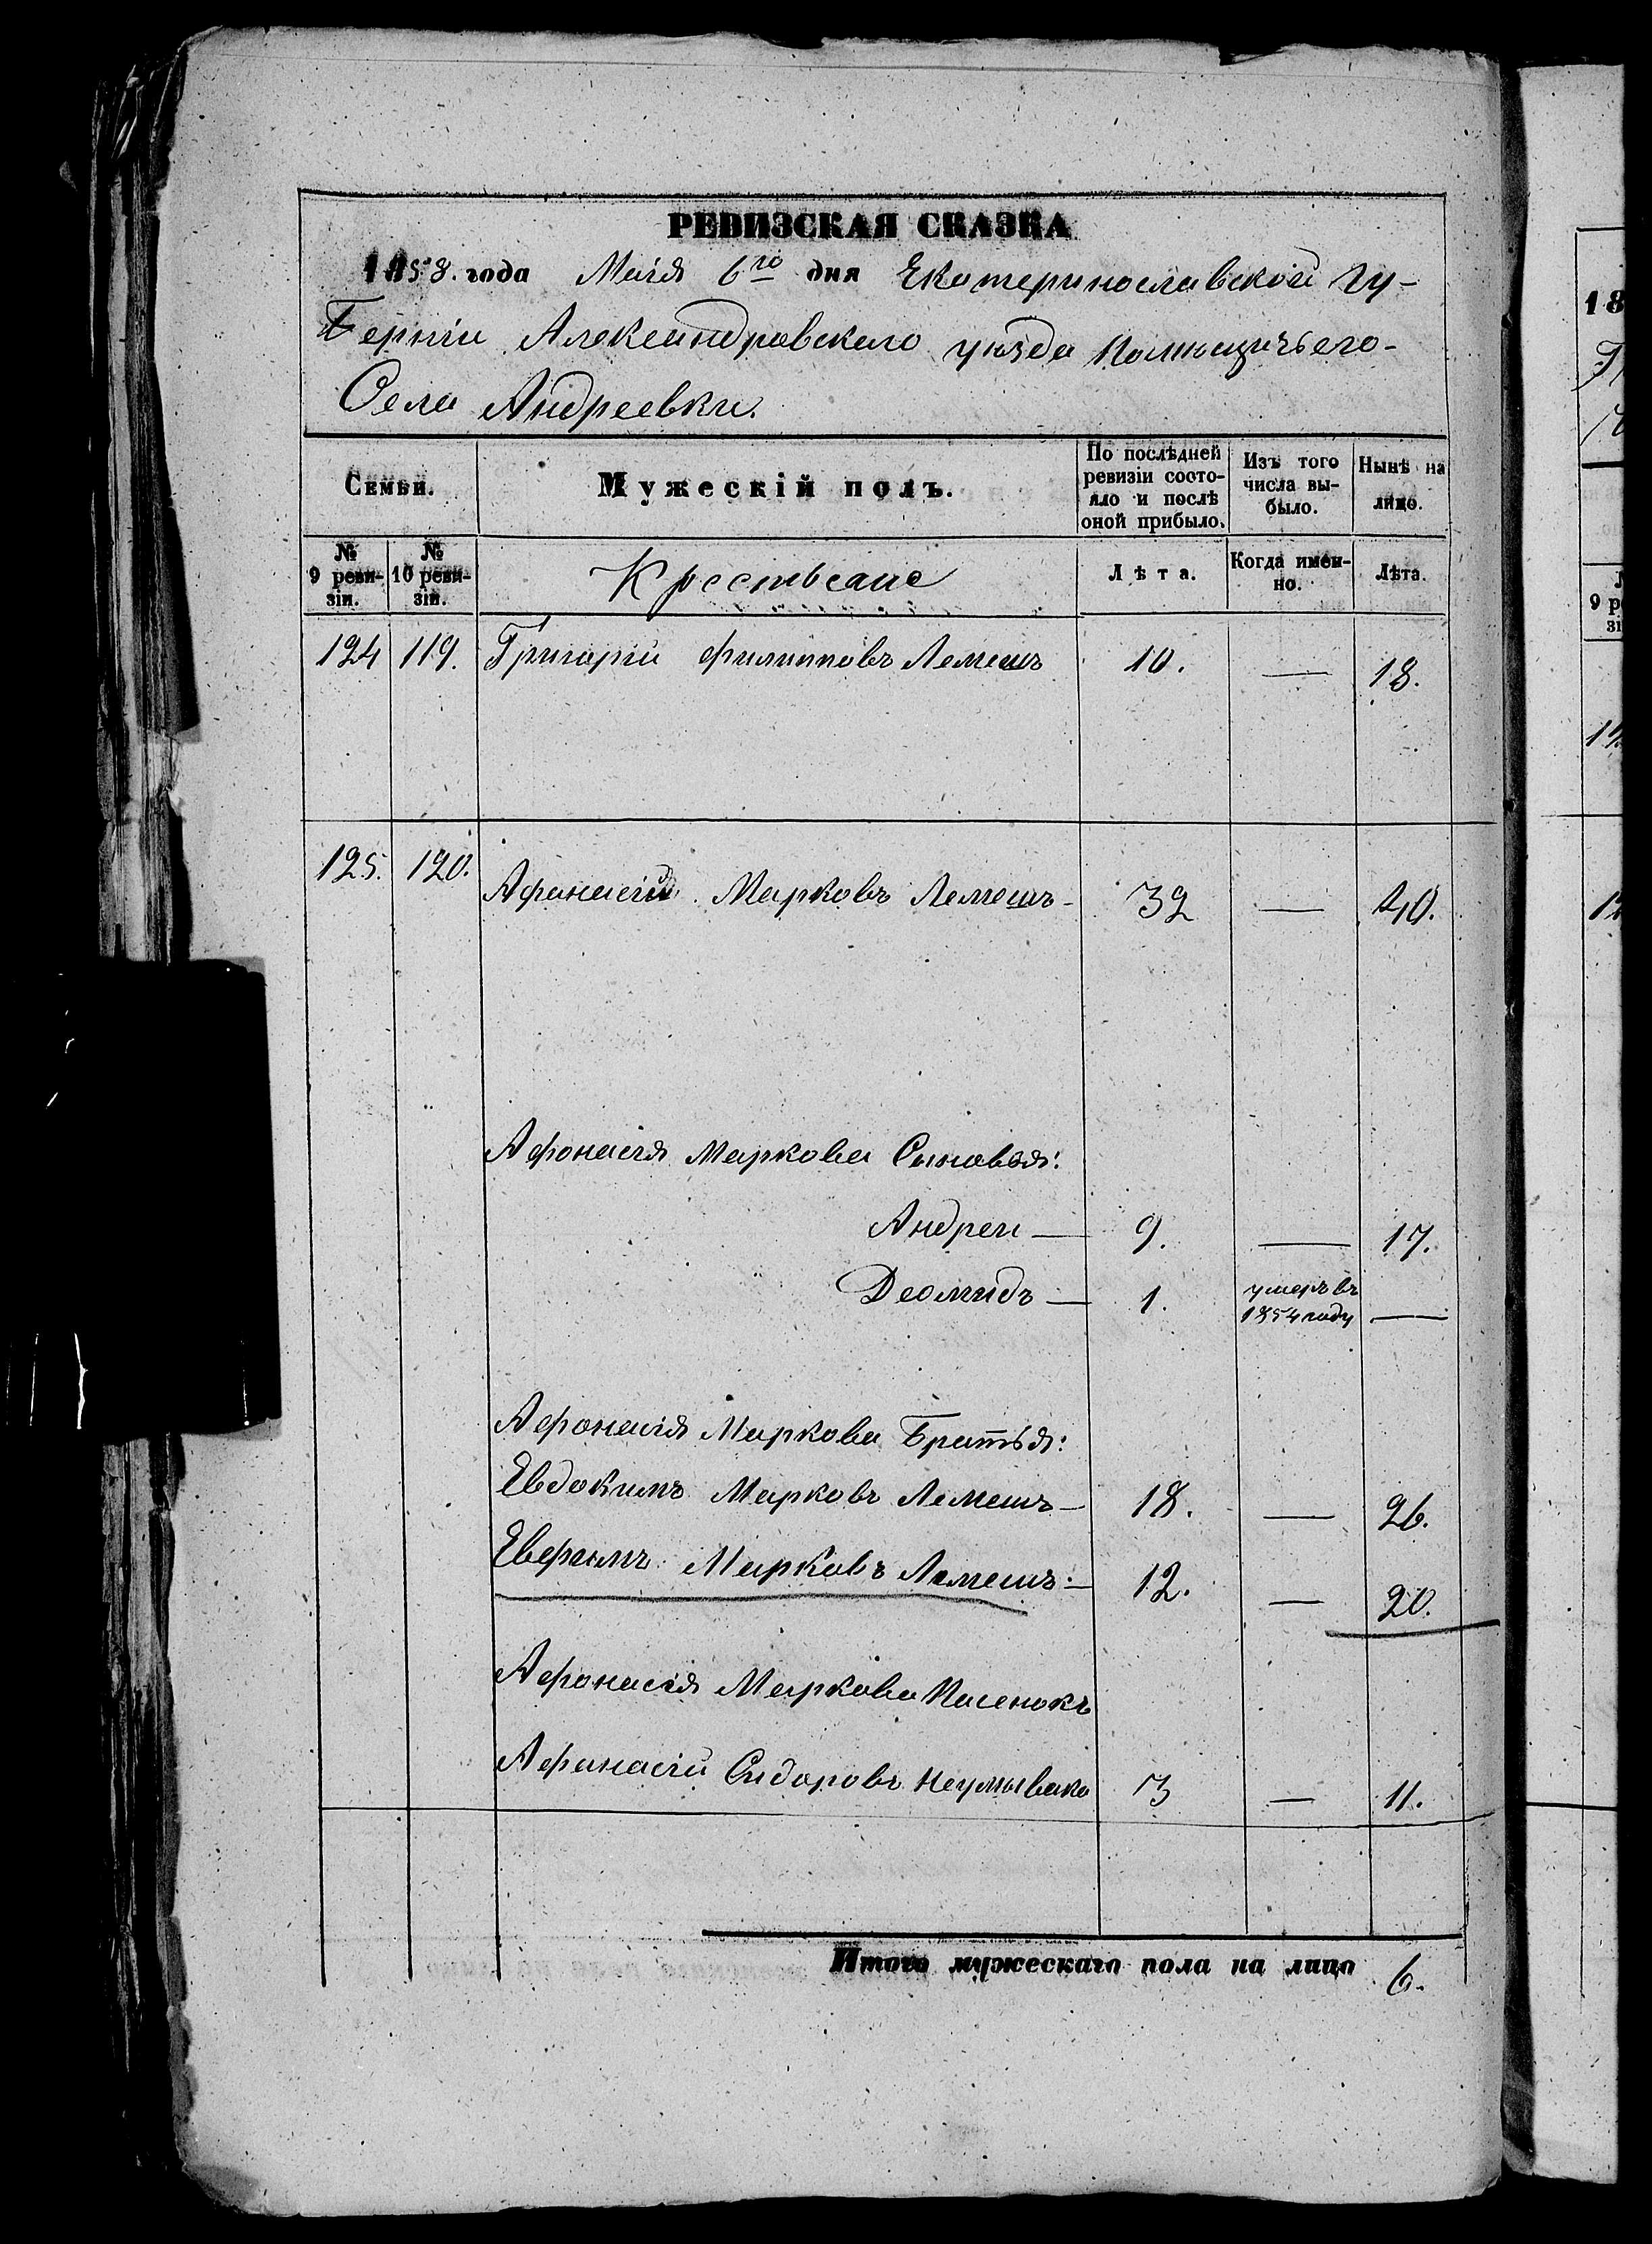 РЕВИЗСКАЯ СКАЗКА
1858. года Маія 6го дня Екатеринославской Гу-
Берніи Александровскаго уѣзда Помѣщичьего-
Села Андреевки.
Семьи.
Мужескій полъ.
По послѣдней
ревизіи состо-
яло и послѣ
оной прибыло.
Изъ того
числа вы-
было.
Нынѣ на
лицо.
№
9 реви-
зіи.
№
10 реви-
зіи.
Крестьяне
Лѣта.
Когда имен-
но.
Лѣта.
124 119. Григорій Филиповъ Лемешъ 10. — 18.
125. 120. Афонасій Марковъ Лемешъ- 32 — 40.
Афонасія Маркова Сыновья:
Андреи — 9. — 17.
Деомидъ — 1. умеръ въ
1854 году —
Афонасія Маркова Братья:
Евдокимъ Марковъ Лемешъ — 18. — 26.
Евфимъ Марковъ Лемешъ — 12. — 20.
Афонасія Маркова Пасенокъ
Афанасій Сидоровъ Неумывако 3 — 11.
Итого мужескаго пола на лицо 6.
18
9 ре
зі